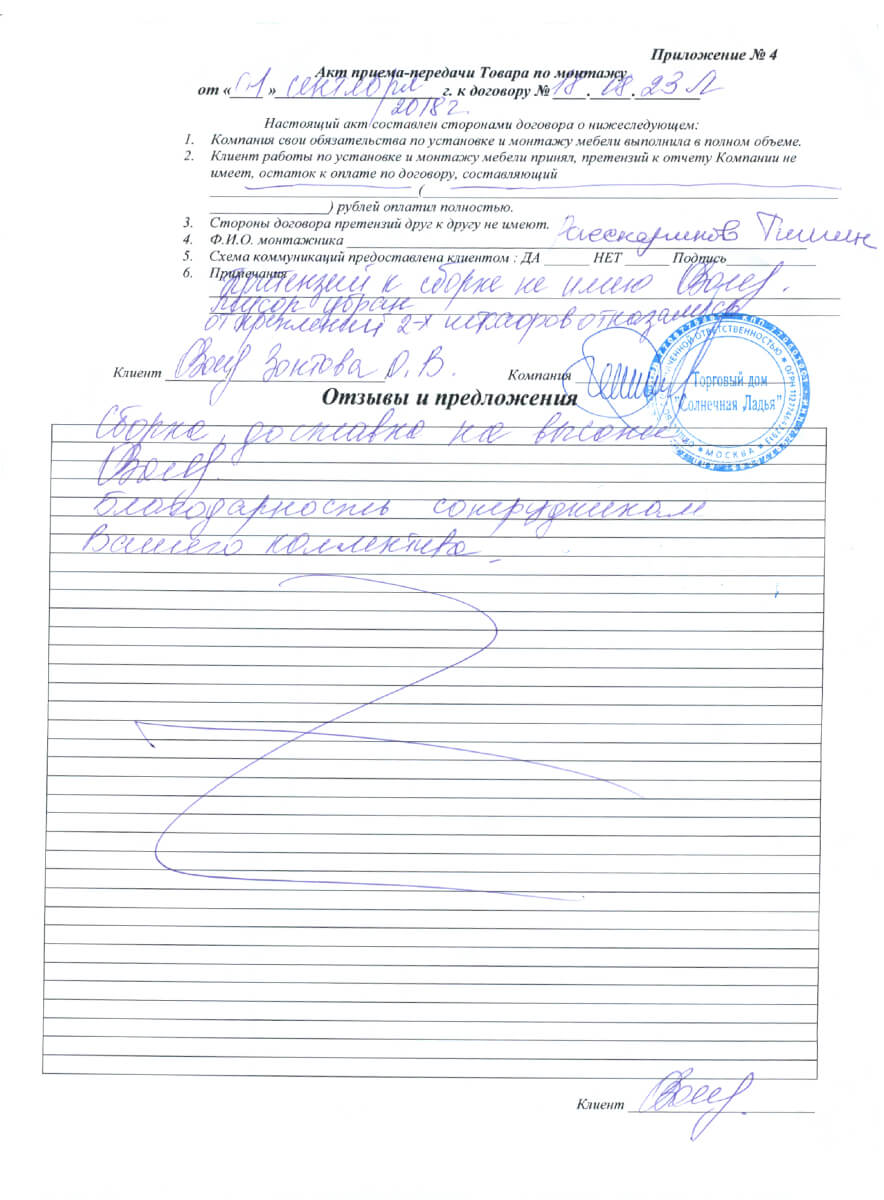 Приложение № 4
Акт приема-передачи Товара по монтажу
от «01» сентября г. к договору № 18.08.23 Л
2018 г.
Настоящий акт составлен сторонами договора о нижеследующем:
1. Компания свои обязательства по установке и монтажу мебели выполнила в полном объеме.
2. Клиент работы по установке и монтажу мебели принял, претензий к отчету Компании не
имеет, остаток к оплате по договору, составляющий
(
) рублей оплатил полностью.
3. Стороны договора претензий друг к другу не имеют.
4. Ф.И.О. монтажника
5. Схема коммуникаций предоставлена клиентом : ДА НЕТ Подпись
6. Примечания претензий к сборке не имею
Мусор убран
от креплений 2-х шкафов отказались
Клиент Зонтова О. В. Компания
Торговый дом
"Солнечная Ладья"
МОСКВА
Отзывы и предложения
Сборка, доставка на высоте
Благодарность сотрудникам
Вашего коллектива
Клиент